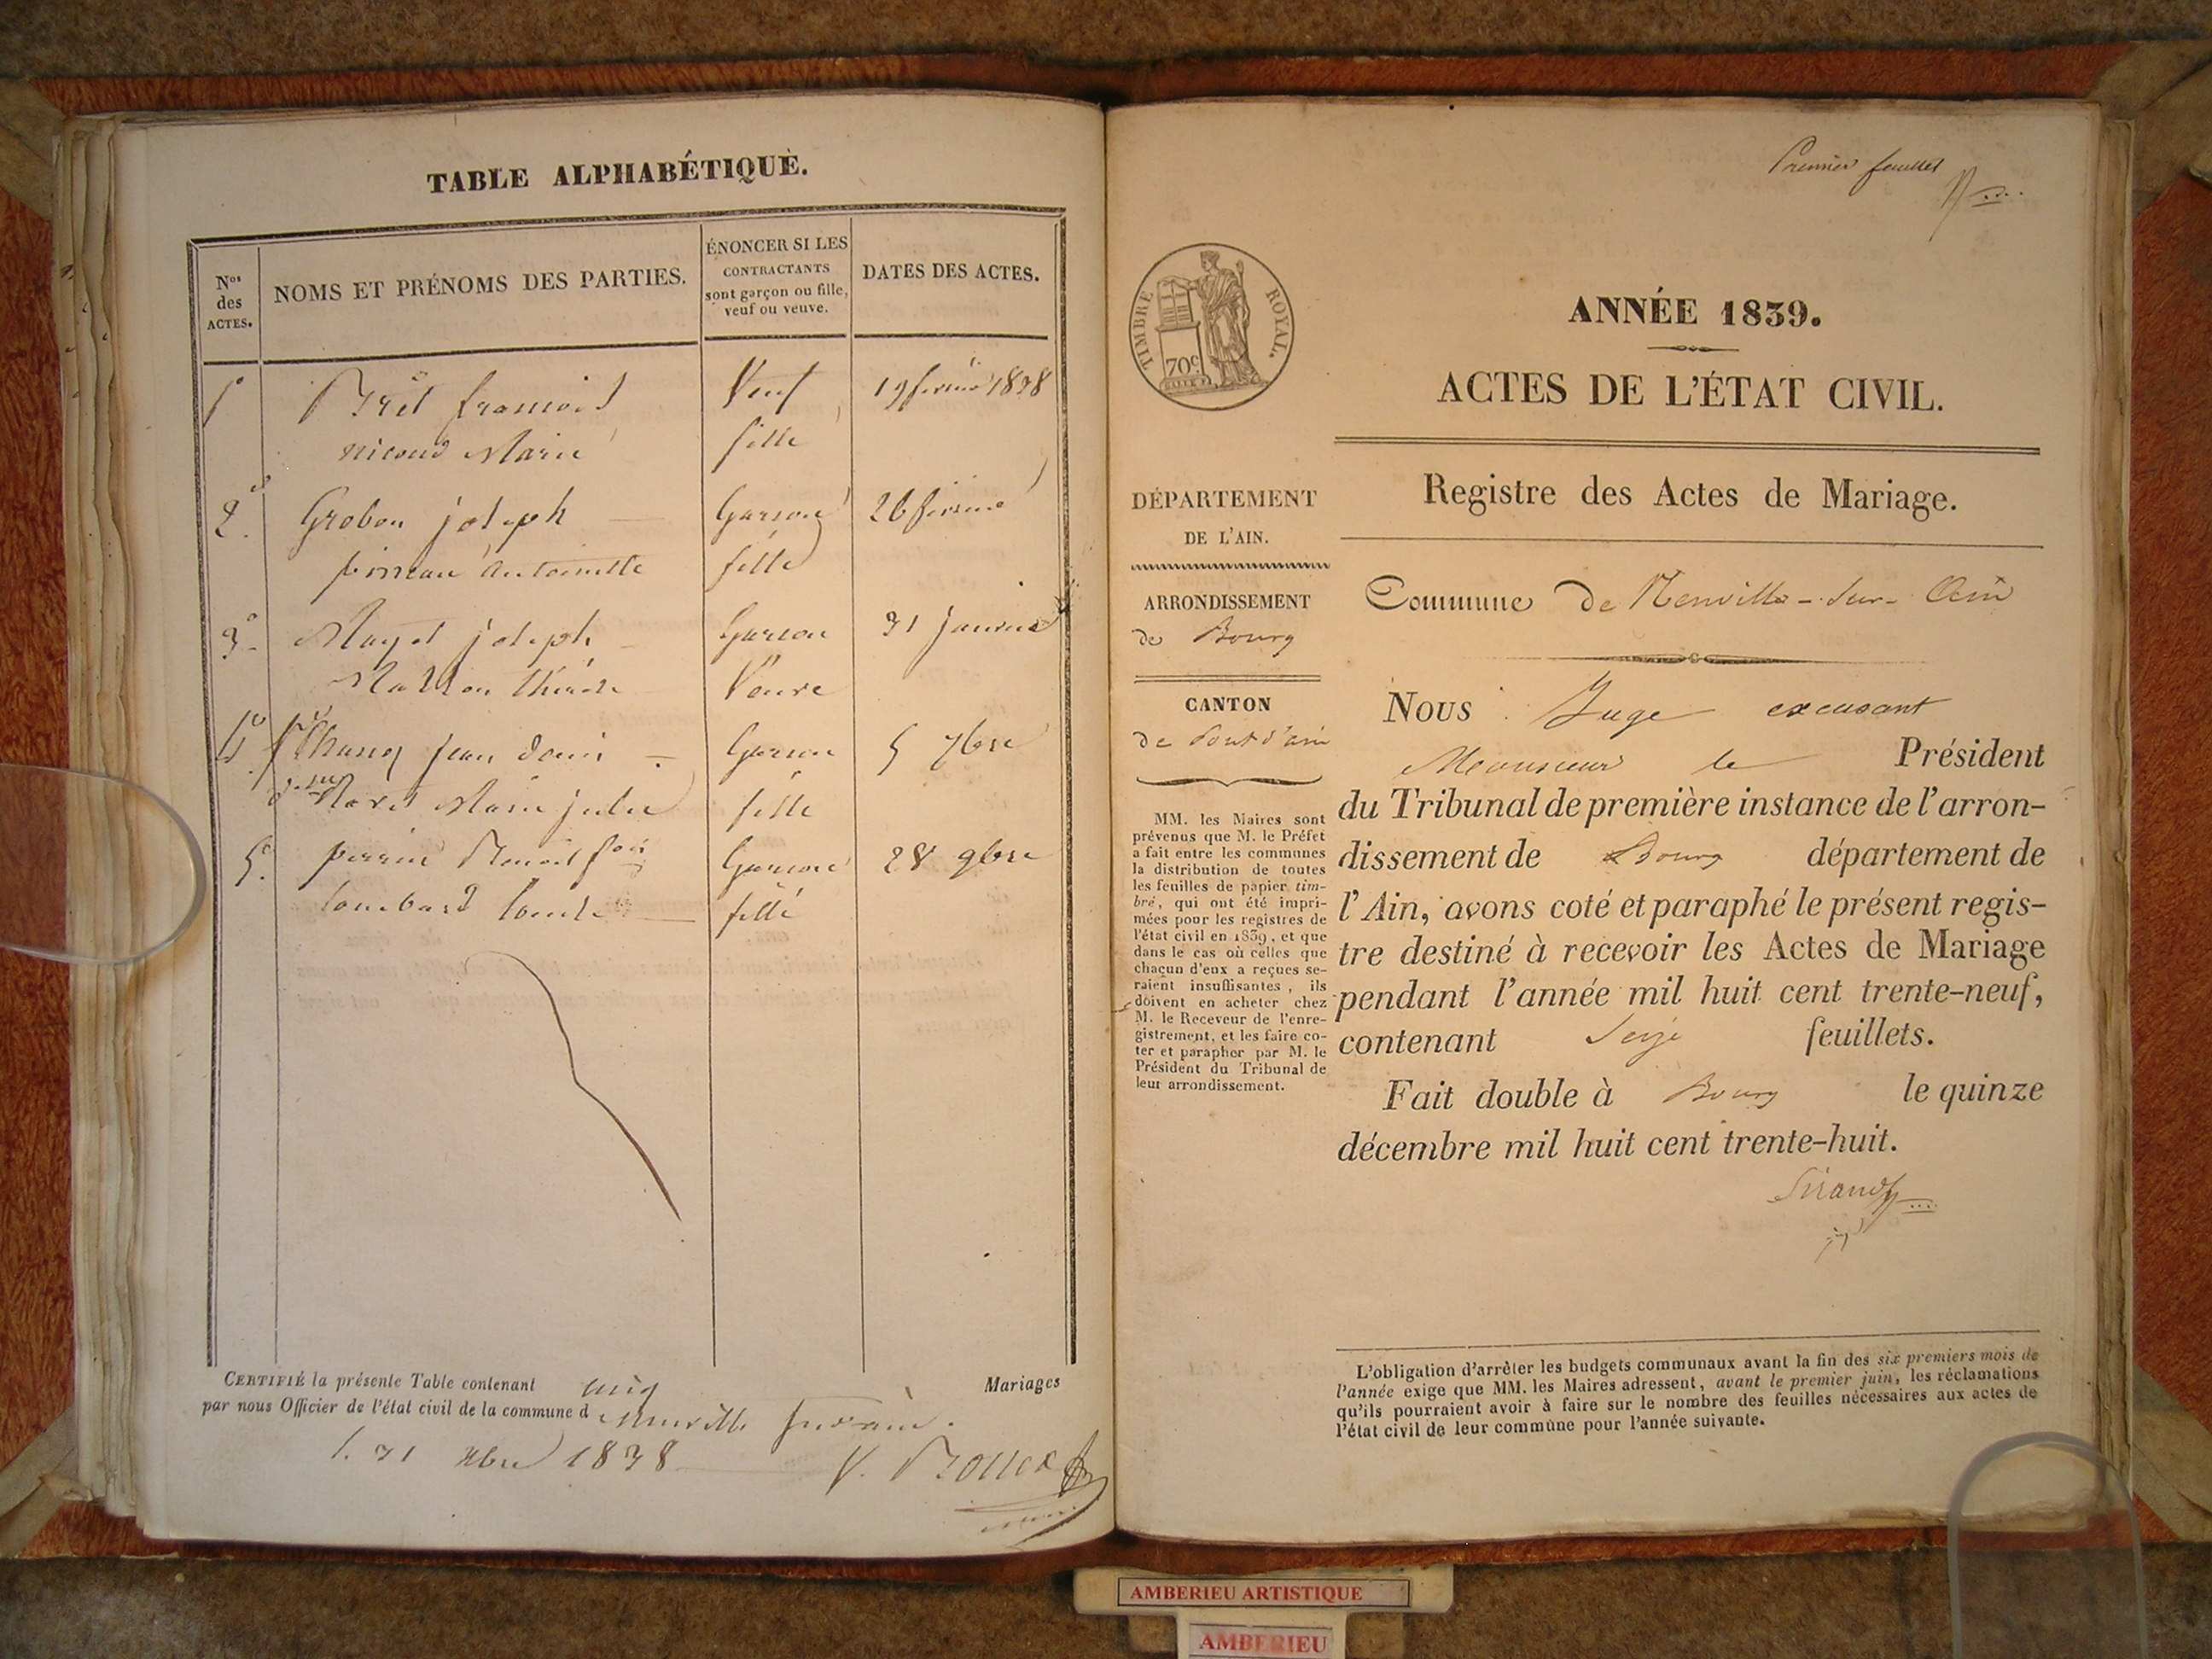 TABLE ALPHABÉTIQUE.
Nos des ACTES.
NOMS ET PRÉNOMS DES PARTIES.
ÉNONCER SI LES CONTRACTANTS sont garçon ou fille, veuf ou veuve.
DATES DES ACTES.
1° Brêt françois Veuf 19 février 1838
nicoud Marie fille
2° Grobon joseph Garson 26 février
Antoinette fille
3° Mayet joseph Garson 31 janvier
Thérèse Veuve
4° jean Garson 5 7bre
Marie julie fille
5° perrin Benoit Garson 28 9bre
lombard fille
CERTIFIÉ la présente Table contenant cinq Mariages
par nous Officier de l'état civil de la commune d neuville sur ain.
l. 31 xbre 1838
Premier feuillet
TIMBRE ROYAL.
70c
ANNÉE 1839.
ACTES DE L'ÉTAT CIVIL.
Registre des Actes de Mariage.
DÉPARTEMENT
DE L'AIN.
ARRONDISSEMENT
de Bourg
CANTON
de Pont d'ain
MM. les Maires sont
prévenus que M. le Préfet
a fait entre les communes
la distribution de toutes
les feuilles de papier tim-
bré, qui ont été impri-
mées pour les registres de
l'état civil en 1839, et que
dans le cas où celles que
chacun d'eux a reçues se-
raient insuffisantes, ils
doivent en acheter chez
M. le Receveur de l'enre-
gistrement, et les faire co-
ter et parapher par M. le
Président du Tribunal de
leur arrondissement.
Commune de Neuville-sur-Ain
Nous Juge excusant
Monsieur le Président
du Tribunal de première instance de l'arron-
dissement de Bourg département de
l'Ain, avons coté et paraphé le présent regis-
tre destiné à recevoir les Actes de Mariage
pendant l'année mil huit cent trente-neuf,
contenant Seize feuillets.
Fait double à Bourg le quinze
décembre mil huit cent trente-huit.
Sirand
L'obligation d'arrêter les budgets communaux avant la fin des six premiers mois de
l'année exige que MM. les Maires adressent, avant le premier juin, les réclamations
qu'ils pourraient avoir à faire sur le nombre des feuilles nécessaires aux actes de
l'état civil de leur commune pour l'année suivante.
AMBERIEU ARTISTIQUE
AMBERIEU